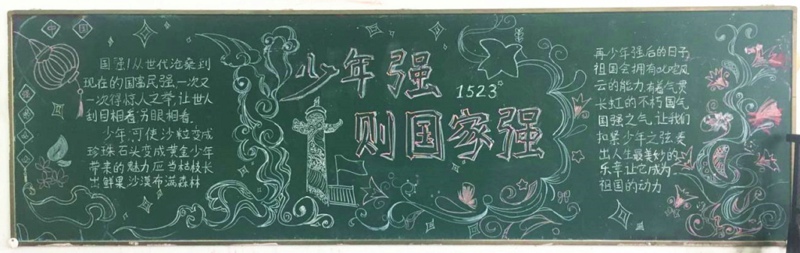 中国
国强从世代沧桑到
现在的国富民强,一次又
一次得惊人之举,让世人
刮目相看,另眼相看。
少年,可使沙粒变成
珍珠石头变成黄金少年
带来的魅力应当枯枝长
出鲜果沙漠布满森林
少年强
1523
则国家强
再少年强后的日子
祖国会拥有叱咤风
云的能力,有着气贯
长虹的不朽国气
国强之气,让我们
扣紧少年之弦奏
出人生最美妙的
乐章,让它成为
祖国的动力